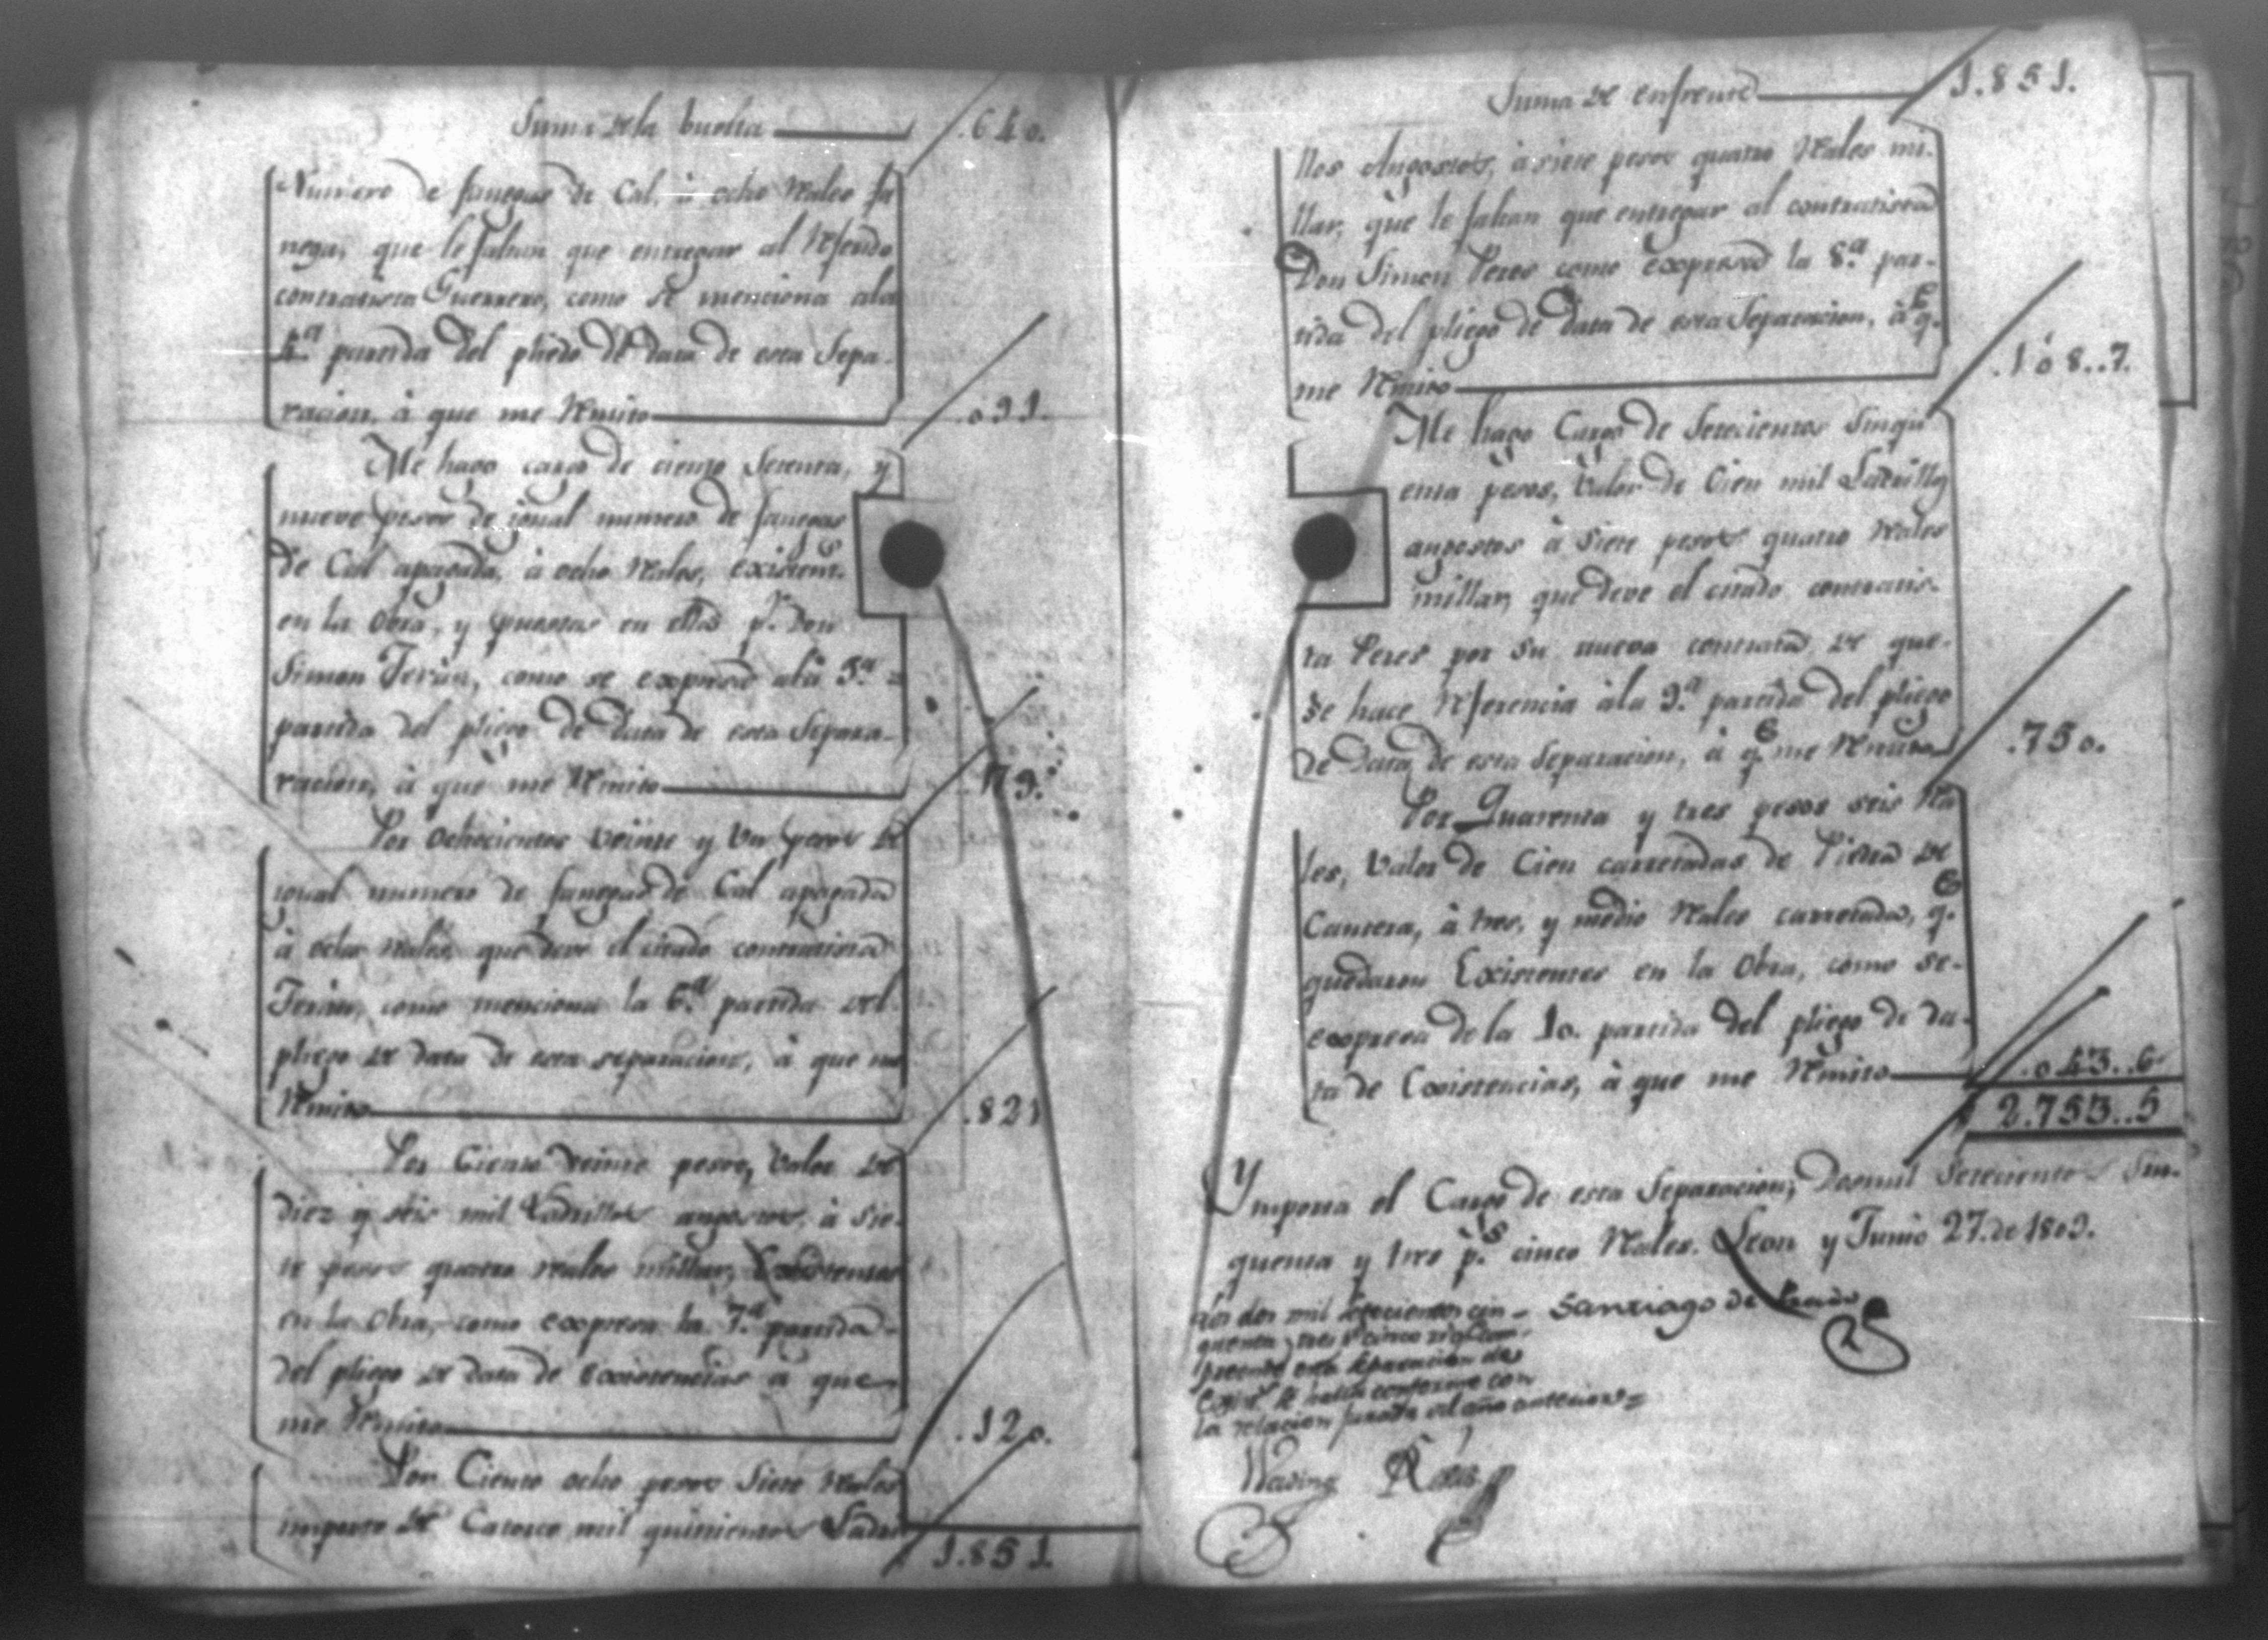 Suma de la buelta .640.
Numero de fanegas de Cal, à ocho Rales fa
nega, que le faltan que entregar al Rfendo
contratista Guerrero, como se menciona ala
4.a partida del pliego de data de esta Sepa-
racion, à que me Rmito .091.
Me hago cargo de ciento Setenta, y
nueve pesos de igual numero de fanegas
de Cal apagada, à ocho Rales, existents
en la Obra, y puestas en ella p.r Don
Simon Terán, como se expresa ala 5.a
partida del pliego de Data de esta Separa-
racion, à que me Rmito .179.
Por Ochocientos veinte y Un pesos de
igual numero de fanegas de Cal apagada
à ocho Rales, que deve el citado contratista
Terán, como menciona la 6.a partida del
pliego de data de esta separacion, à que me
Rmito .821
Por Ciento veinte pesos, valor de
diez y seis mil Ladrillos angostos, à sie-
te pesos quatro reales millar, Existentes
en la Obra, como expresa la 7.a partida
del pliego de data de Existencias à que
me Rmito .120.
Por Ciento ocho pesos Siete Rales
importe de Catorce mil quinientos Ladri
1.851
Suma de enfrente 1.851.
llos Angostos, à siete pesos quatro Rales mi-
llar, que le faltan que entregar al contratista
Don Simon Peres como expresa la 8.a par-
tida del pliego de Data de esta Separacion, à q.e
me Rmito .108..7.
Me hago Cargo de Setecientos Sinqu
enta pesos, Valor de Cien mil Ladrillos
angostos à Siete pesos quatro Rales
millar, que deve el citado contratis-
ta Peres por su nueva contrata, de que
se hace Rferencia àla 9.a partida del pliego
de Data de esta Separacion, à q.e me Rmito .750.
Por Quarenta y tres pesos seis Ra
les, Valor de Cien carretadas de Piedra de
Cantera, à tres, y medio Rales carretada, q.e
quedaron Existentes en la Obra, como se
expresa de la 10. partida del pliego de da-
ta de Existencias, à que me Rmito .043..6
2.753..5
Ymporta el Cargo de esta Separacion, Dosmil Setecientos Sin-
quenta y tres p.s cinco Rales. Leon y Junio 27. de 1809.
Santiago de
los dos mil setecientos cin-
quenta y tres p.s cinco r.s q.e com-
prende esta separacion de
Cargo se halla conforme con
la relacion jurada del año anterior=